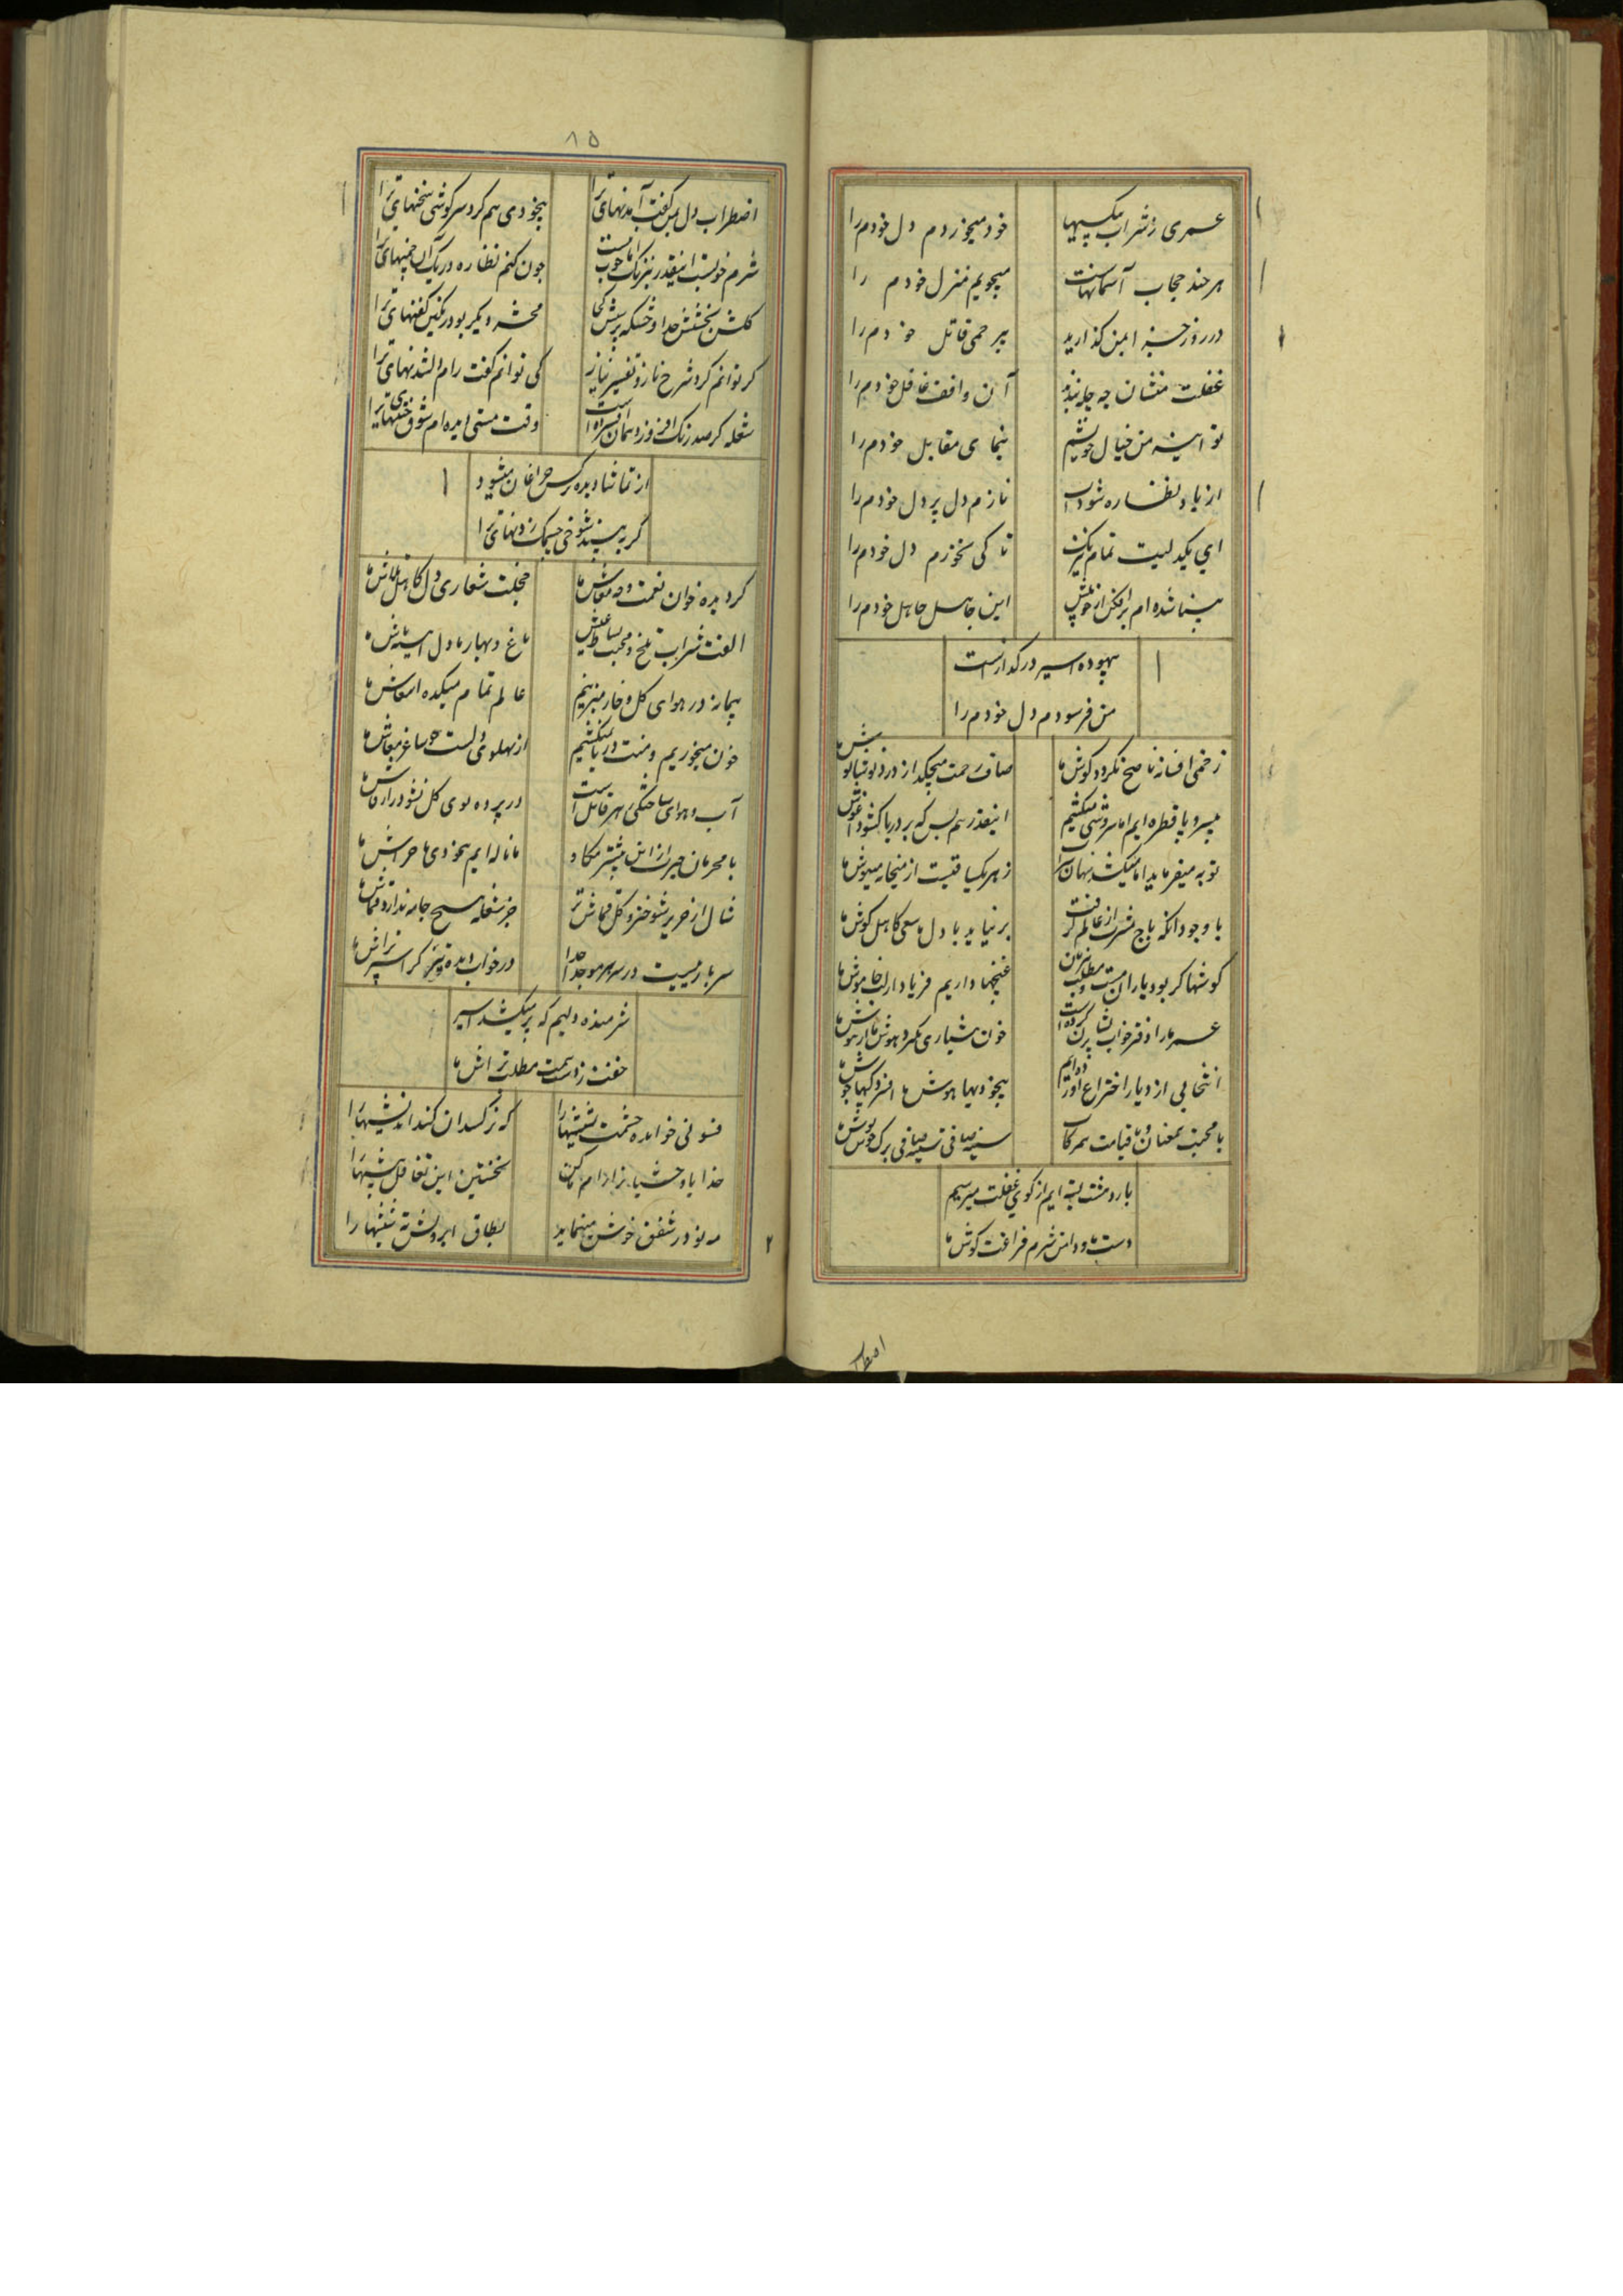 عمری ز شراب بیکسیها
خود میخوردم دل خودم را
هر چند حجاب آسمانهاست
میجویم منزل خودم را
در روز جزا بمن گذارید
بیرحمی قاتل خودم را
غفلت منشان چه چاره
آن واقف غافل خودم را
تو اینه من خیال خویشم
بنمای مقابل خودم را
از یاد نظاره شود آب
نازم دل پر دل خودم را
ای یکدلیت تمام نیرنگ
تا کی نخورم دل خودم را
بینا شده ام برافکن از خویش
این جاهل جاهل خودم را
بیهوده اسیر در گدازست
من فرسودم دل خودم را
زخمی افسانه ناصح نکردد گوش ما
صاف رحمت میچکد از درد نوشانوش ما
پیرو یا قطره ایم اما سروشی میکشیم
اینقدر هم بس که بر دریا کشود آغوش ما
توبه میفرماید اما میکشد پنهان شراب
زهر یکسا قیست از میخانه مینوش ما
با وجود آنکه باج مشرب از عالم گرفت
بر نیاید با دل ما سعی کاهل کوش ما
گوشها کر بود یاران مست و مطلب
غنچها داریم فریاد از لب خاموش ما
عمر ما را دفتر خواب پریشان کرده است
خون هشیاری نکردد هوش ما از هوش ما
انتخابی از دیار اختراع آورده ایم
بیخودیها هوش ما افسردگیها جوش ما
با محبت همعنان و با قیامت همرکاب
سینه صافی تیشه صافی برک جوش ما
با دو مشت بسته ایم از کوی غفلت میرسیم
دست ما و دامن شرم فراغت کوش ما
۸۵
اضطراب دل بمن گفت آمدنهای ترا
بیخودی هم کرد سرگوشی سخنهای ترا
شرم خوبست اینقدر نیرنگ اما خوب نیست
چون کنم نظاره در یک آن چمنهای ترا
گلشن بخشش جدا و خشکه پرسش
محشر دیگر بود رنگین کفنهای ترا
گر توانم کرد شرح ناز و تفسیر نیاز
کی توانم گفت رام دلشدنهای ترا
شعله گر صد رنگ افروزد همان افسرده است
وقت مستی دیده ام شوق ختنهای ترا
از تماشا دیده نرگس چراغان میشود
گر به بیند شوخی چشمک زدنهای ترا
گردیده خوان نعمت و جه معاش ما
خجلت شعاری دل کاهل تلاش ما
الفت شراب تلخ و محبت بساط عیش
باغ و بهار ما دل
پیمانه در هوای گل و خار میزنیم
عالم تمام میکده امعاش ما
خون میخوریم و منت دریا نمیکشیم
از پهلوی دلست چو ساغر معاش ما
آب و هوای ساختگی زهر قاتل است
در پرده بوی گل نشود راز فاش ما
با محرمان حیرت ازین بیشتر مکاو
ما ناله ایم بیخودی ما خراش ما
شال از حریر شوختر و گل قماش تر
جز شعله هیچ جامه ندارد قماش ما
سر باز نیست در سر هر مو جدا جدا
در خواب دیده
شرمنده دلیم که بر میکشد اسیر
خفت ز دست همت مطلب تراش ما
فسونی خوانده چشمت تیشها را
که نرگسدان کند اندیشها را
خدایا وحشیان را رام ما کن
نخستین این تغافل پیشها را
مه نو در شفق خوش مینماید
بطاق ابرویش نه شیشها را
۲
اضطراب